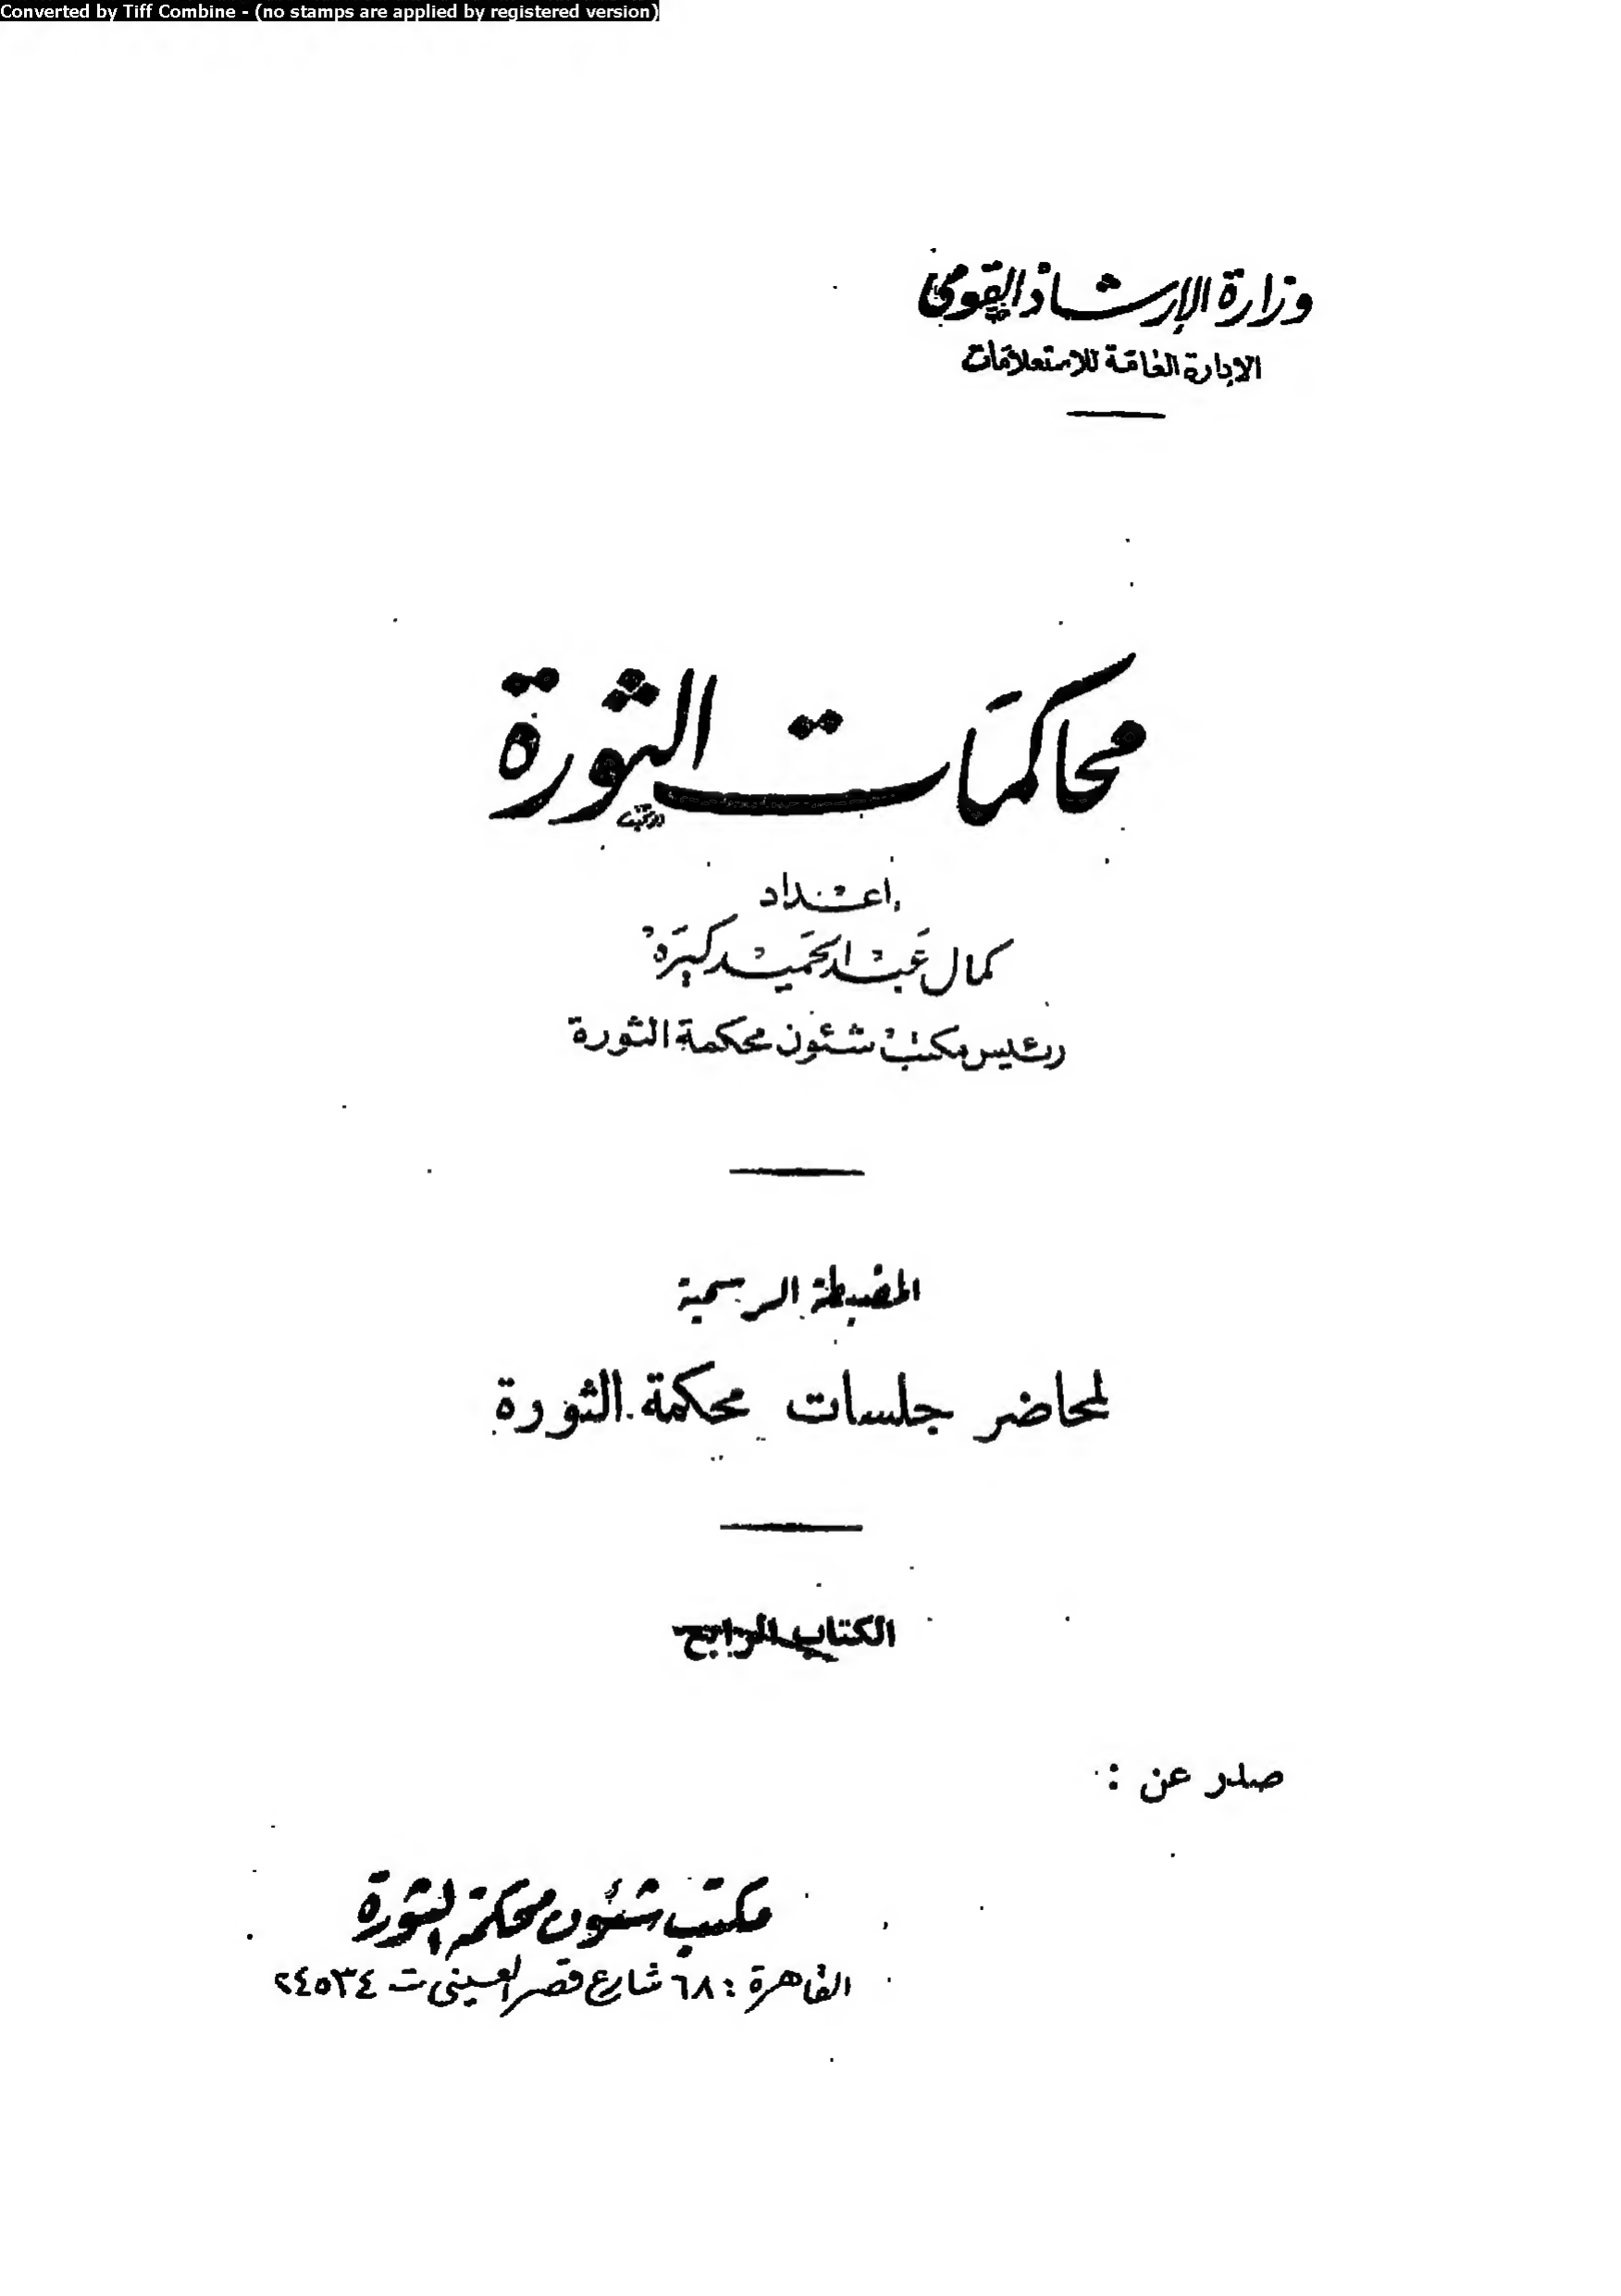 Converted by Tiff Combine - (no stamps are applied by registered version)
وزارة الإرشاد القومى
الإدارة العامة للاستعلامات
محاكمات الثورة
إعداد
كمال عبد الحميد كيرة
رئيس مكتب شئون محكمة الثورة
المضبطة الرسمية
لمحاضر جلسات محكمة الثورة
الكتاب الرابع
صدر عن :
مكتب شئون محكمة الثورة
القاهرة : ٦٨ شارع قصر العينى ت ٢٤٥٣٤